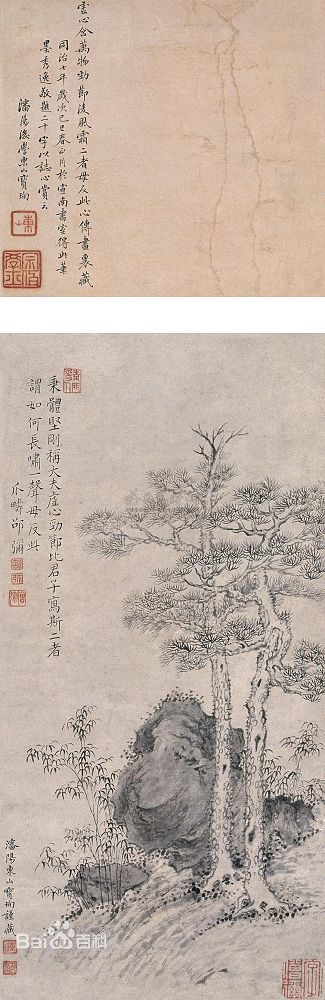 虚心含萬物勁節凌風霜二者毋反此心傳畫裏藏
同治七年歲次己巳春正月於宣南書室得此筆
墨秀逸敬題二十字以誌心賞云
瀋陽後學東山寶珣
東山
秉體堅剛稱大夫虛心勁節比君子寫斯二者
謂如何長嘯一聲毋反此
瓜疇邵彌
瀋陽東山寶珣謹藏
Bai百科